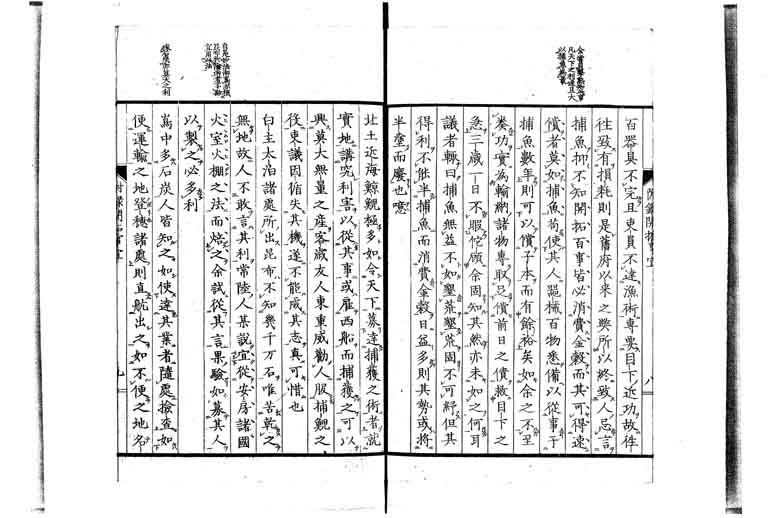 百器具不完且吏員不達漁術專要目下近功故往
往致有損耗則是舊府以來之弊所以終致人忌言
捕魚抑不知開拓百事皆必消費金穀而其可得速
償者莫如捕魚苟使其人器械百物悉備以從事于
捕魚數年則可以償子本而有餘裕矣如余之不至
奏功實為輸納諸物專取足償前日之債救目下之
急三歲一日不暇佗顧余固知其然亦未如之何耳
議者輙曰捕魚無益不如墾荒墾荒固不可紓但其
得利不能半捕魚而消費金穀日益多則其勢或將
半塗而廢也噫
北土近海鯨鯢極多如令天下募達捕獲之術者就
實地講究利害以從其事或雇西船而捕獲之可以
興莫大無量之産客歲友人東重威勸人服捕鯢之
役吏議因循失其機遂不能成其志真可惜也
白主太泊諸處所出昆布不知幾千万石唯苦乾之
無地故人不敢言其利常陸人某說宜從安房諸國
火室火棚之法而焙之余試從其言果驗如募其人
以製之必多利
嶌中多石炭人皆知之如使達其業者隨處撿查如
便運輸之地登穗諸處則直航出之如不便之地名